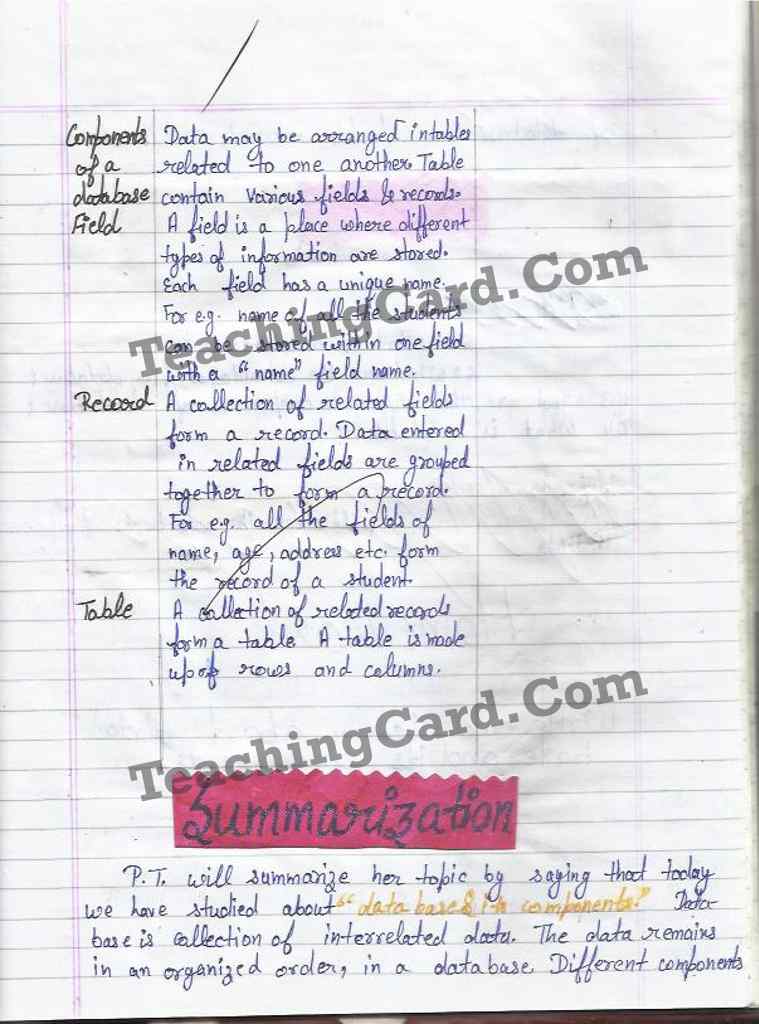 Components Data may be arranged in tables
of a related to one another. Table
database contain various fields & records.
Field A field is a place where different
types of information are stored.
Each field has a unique name.
For e.g. name of all the students
can be stored within one field
with a "name" field name.
TeachingCard.Com
Record A collection of related fields
form a record. Data entered
in related fields are grouped
together to form a record.
For e.g. all the fields of
name, age, address etc. form
the record of a student.
Table A collection of related records
form a table. A table is made
up of rows and columns.
TeachingCard.Com
Summarization
P.T. will summarize her topic by saying that today
we have studied about "data base & its components." Data-
base is collection of interrelated data. The data remains
in an organized order, in a database. Different components